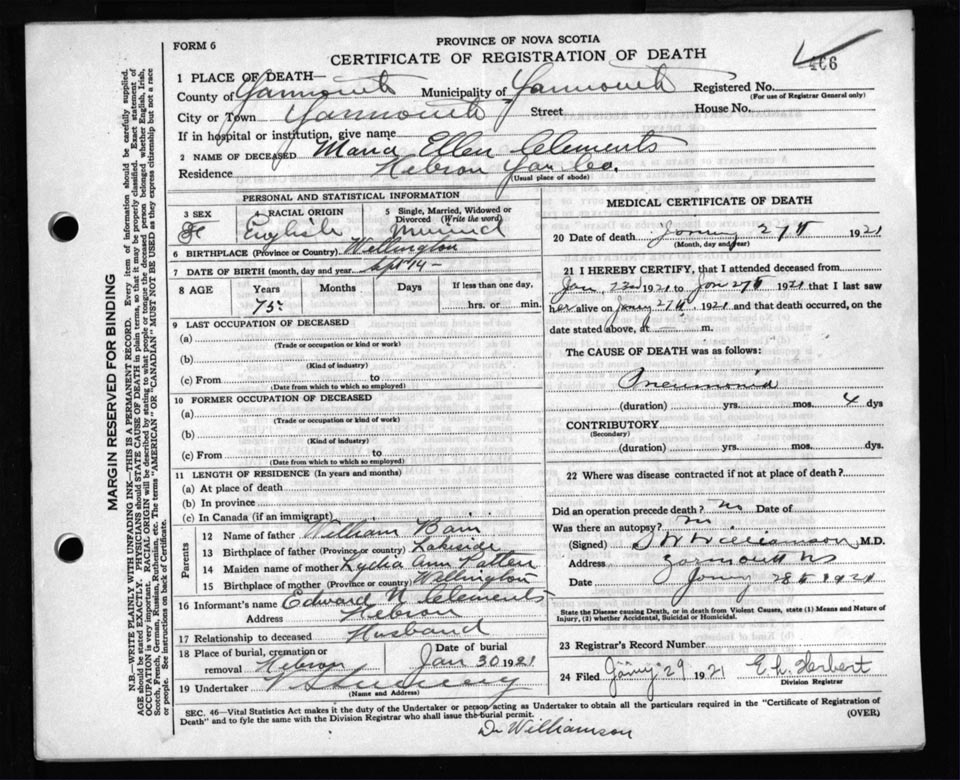 FORM 6
PROVINCE OF NOVA SCOTIA
CERTIFICATE OF REGISTRATION OF DEATH
466
1 PLACE OF DEATH—
County of Yarmouth Municipality of Yarmouth Registered No.
(For use of Registrar General only)
City or Town Yarmouth Street House No.
If in hospital or institution, give name
2 NAME OF DECEASED Ellen Clements
Residence Hebron Yar Co.
(Usual place of abode)
PERSONAL AND STATISTICAL INFORMATION
3 SEX 4 RACIAL ORIGIN 5 Single, Married, Widowed or Divorced (Write the word)
English Married
6 BIRTHPLACE (Province or Country) Wellington
7 DATE OF BIRTH (month, day and year) Sept 14 –
8 AGE Years Months Days If less than one day,
75 hrs. or min.
9 LAST OCCUPATION OF DECEASED
(a)
(Trade or occupation or kind or work)
(b)
(Kind of industry)
(c) From to
(Date from which to which so employed)
10 FORMER OCCUPATION OF DECEASED
(a)
(Trade or occupation or kind of work)
(b)
(Kind of industry)
(c) From to
(Date from which to which so employed)
11 LENGTH OF RESIDENCE (In years and months)
(a) At place of death
(b) In province
(c) In Canada (if an immigrant)
Parents
12 Name of father William Bain
13 Birthplace of father (Province or country) Lakeside
14 Maiden name of mother Lydia Ann Patten
15 Birthplace of mother (Province or country) Wellington
16 Informant's name Edward N Clements
Address Hebron
17 Relationship to deceased Husband
18 Place of burial, cremation or removal Hebron Date of burial Jan 30 1921
19 Undertaker
(Name and Address)
MEDICAL CERTIFICATE OF DEATH
20 Date of death 27th 1921
(Month, day and year)
21 I HEREBY CERTIFY, that I attended deceased from
Jan 23rd 1921 to Jan 27th 1921 that I last saw
her alive on 27th 1921 and that death occurred, on
date stated above, at — m.
The CAUSE OF DEATH was as follows:
Pneumonia
(duration) yrs. mos. 4 dys
CONTRIBUTORY
(Secondary)
(duration) yrs. mos. dys
22 Where was disease contracted if not at place of death?
Did an operation precede death? no Date of
Was there an autopsy? no
(Signed) Williamson M.D.
Address Yarmouth NS
Date 28th 1921
State the Disease causing Death, or in death from Violent Causes, state (1) Means and Nature of Injury, (2) whether Accidental, Suicidal or Homicidal.
23 Registrar's Record Number
24 Filed 29 1921 E. L. Herbert
Division Registrar
SEC. 46—Vital Statistics Act makes it the duty of the Undertaker or person acting as Undertaker to obtain all the particulars required in the "Certificate of Registration of
Death" and to fyle the same with the Division Registrar who shall issue the burial permit.
(OVER)
Dr Williamson
MARGIN RESERVED FOR BINDING
N.B.—WRITE PLAINLY WITH UNFADING INK—THIS IS A PERMANENT RECORD. Every item of information should be carefully supplied.
AGE should be stated EXACTLY. PHYSICIANS should STATE CAUSE OF DEATH in plain terms, so that it may be properly classified. Exact statement of
OCCUPATION is very important. RACIAL ORIGIN will be described by stating to what people or tongue the deceased person belonged whether English, Irish,
Scotch, French, German, Russian, Ruthenian, etc. The terms "AMERICAN" OR "CANADIAN" MUST NOT BE USED as they express citizenship but not a race
or people. See instructions on back of Certificate.